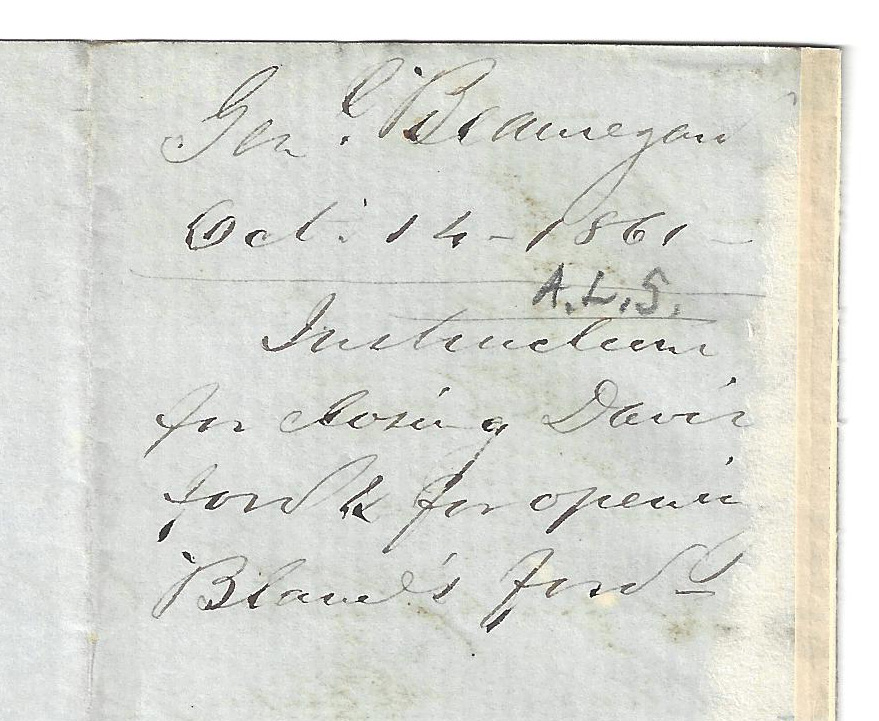 Genl Beauregard
Oct. 14 - 1861 -
A.L.S.
Instructions
for closing Davis
ford & for opening
Bland's ford -